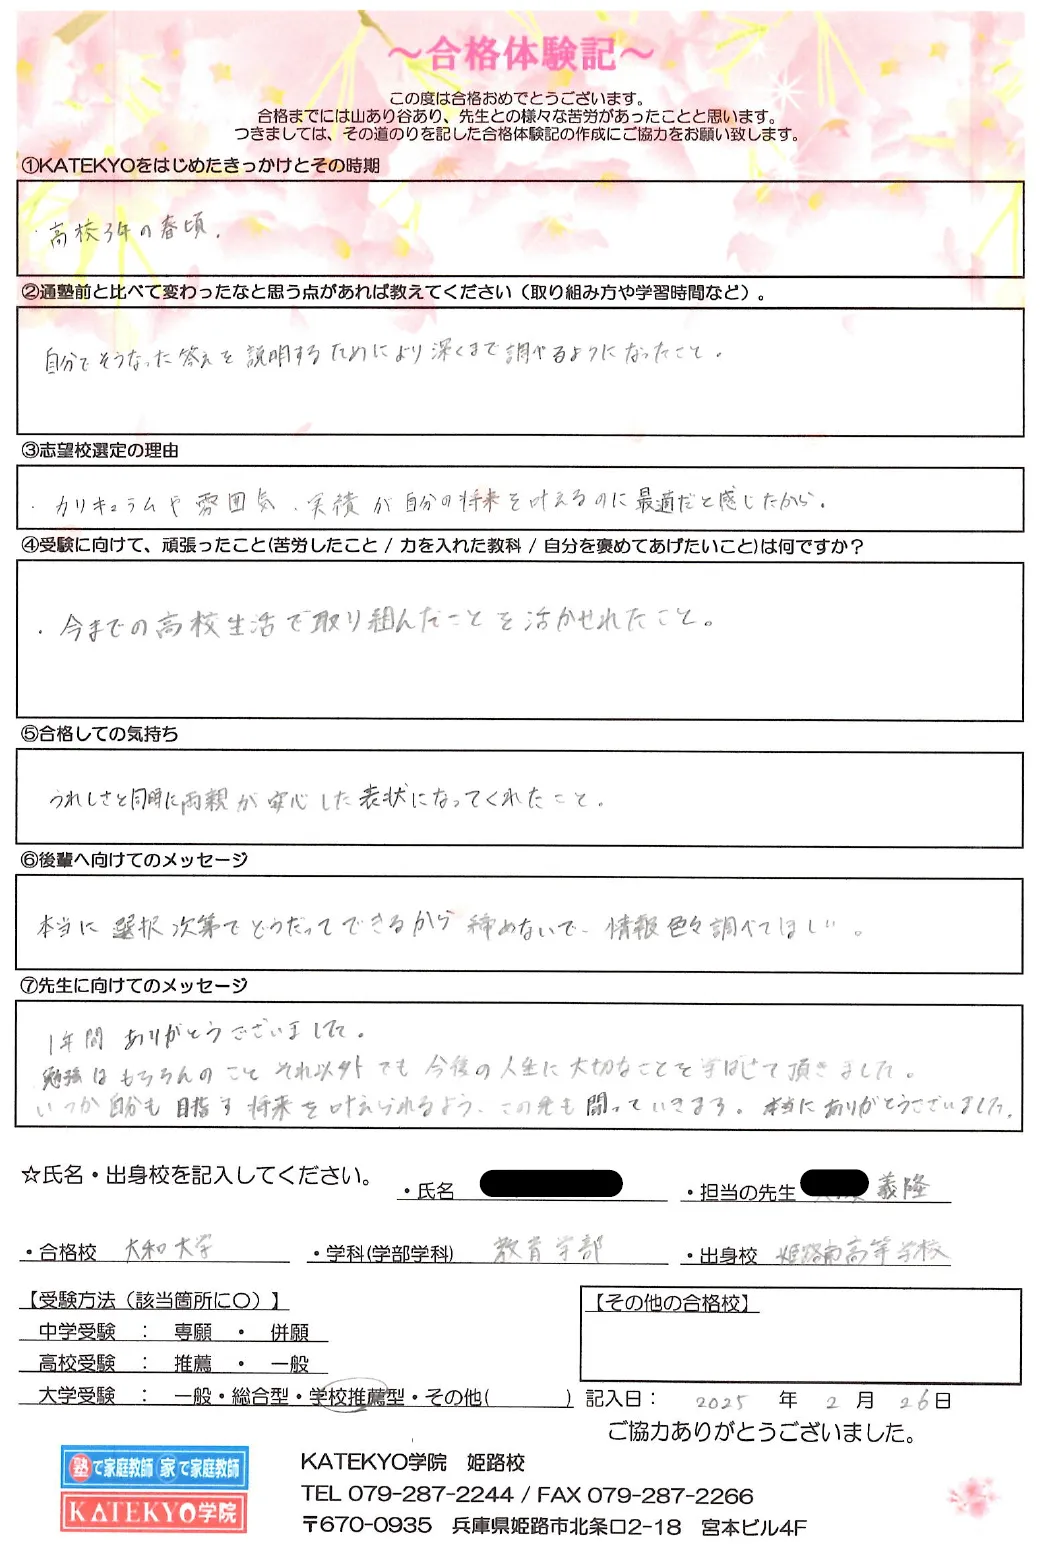 ～合格体験記～
この度は合格おめでとうございます。
合格までには山あり谷あり、先生との様々な苦労があったことと思います。
つきましては、その道のりを記した合格体験記の作成にご協力をお願い致します。
①KATEKYOをはじめたきっかけとその時期
・高校3年の春頃。
②通塾前と比べて変わったなと思う点があれば教えてください（取り組み方や学習時間など）。
自分でそうなった答えを説明するためにより深くまで調べるようになったこと。
③志望校選定の理由
・カリキュラムや雰囲気、実績が自分の将来を叶えるのに最適だと感じたから。
④受験に向けて、頑張ったこと(苦労したこと / 力を入れた教科 / 自分を褒めてあげたいこと)は何ですか？
・今までの高校生活で取り組んだことを活かせれたこと。
⑤合格しての気持ち
うれしさと同時に両親が安心した表状になってくれたこと。
⑥後輩へ向けてのメッセージ
本当に選択次第でどうだってできるから諦めないで、情報色々調べてほしい。
⑦先生に向けてのメッセージ
1年間ありがとうございました。
勉強はもちろんのことそれ以外でも今後の人生に大切なことを学ばせて頂きました。
いつか自分も目指す将来を叶えられるよう、この先も闘っていきます。本当にありがとうございました。
☆氏名・出身校を記入してください。
・氏名
・担当の先生 義隆
・合格校 大和大学
・学科(学部学科) 教育学部
・出身校 姫路南高等学校
【受験方法（該当箇所に〇）】
中学受験 ： 専願 ・ 併願
高校受験 ： 推薦 ・ 一般
大学受験 ： 一般・総合型・学校推薦型・その他( )
【その他の合格校】
記入日： 2025 年 2 月 26日
ご協力ありがとうございました。
塾で家庭教師 家で家庭教師
KATEKYO学院
KATEKYO学院 姫路校
TEL 079-287-2244 / FAX 079-287-2266
〒670-0935 兵庫県姫路市北条口2-18 宮本ビル4F